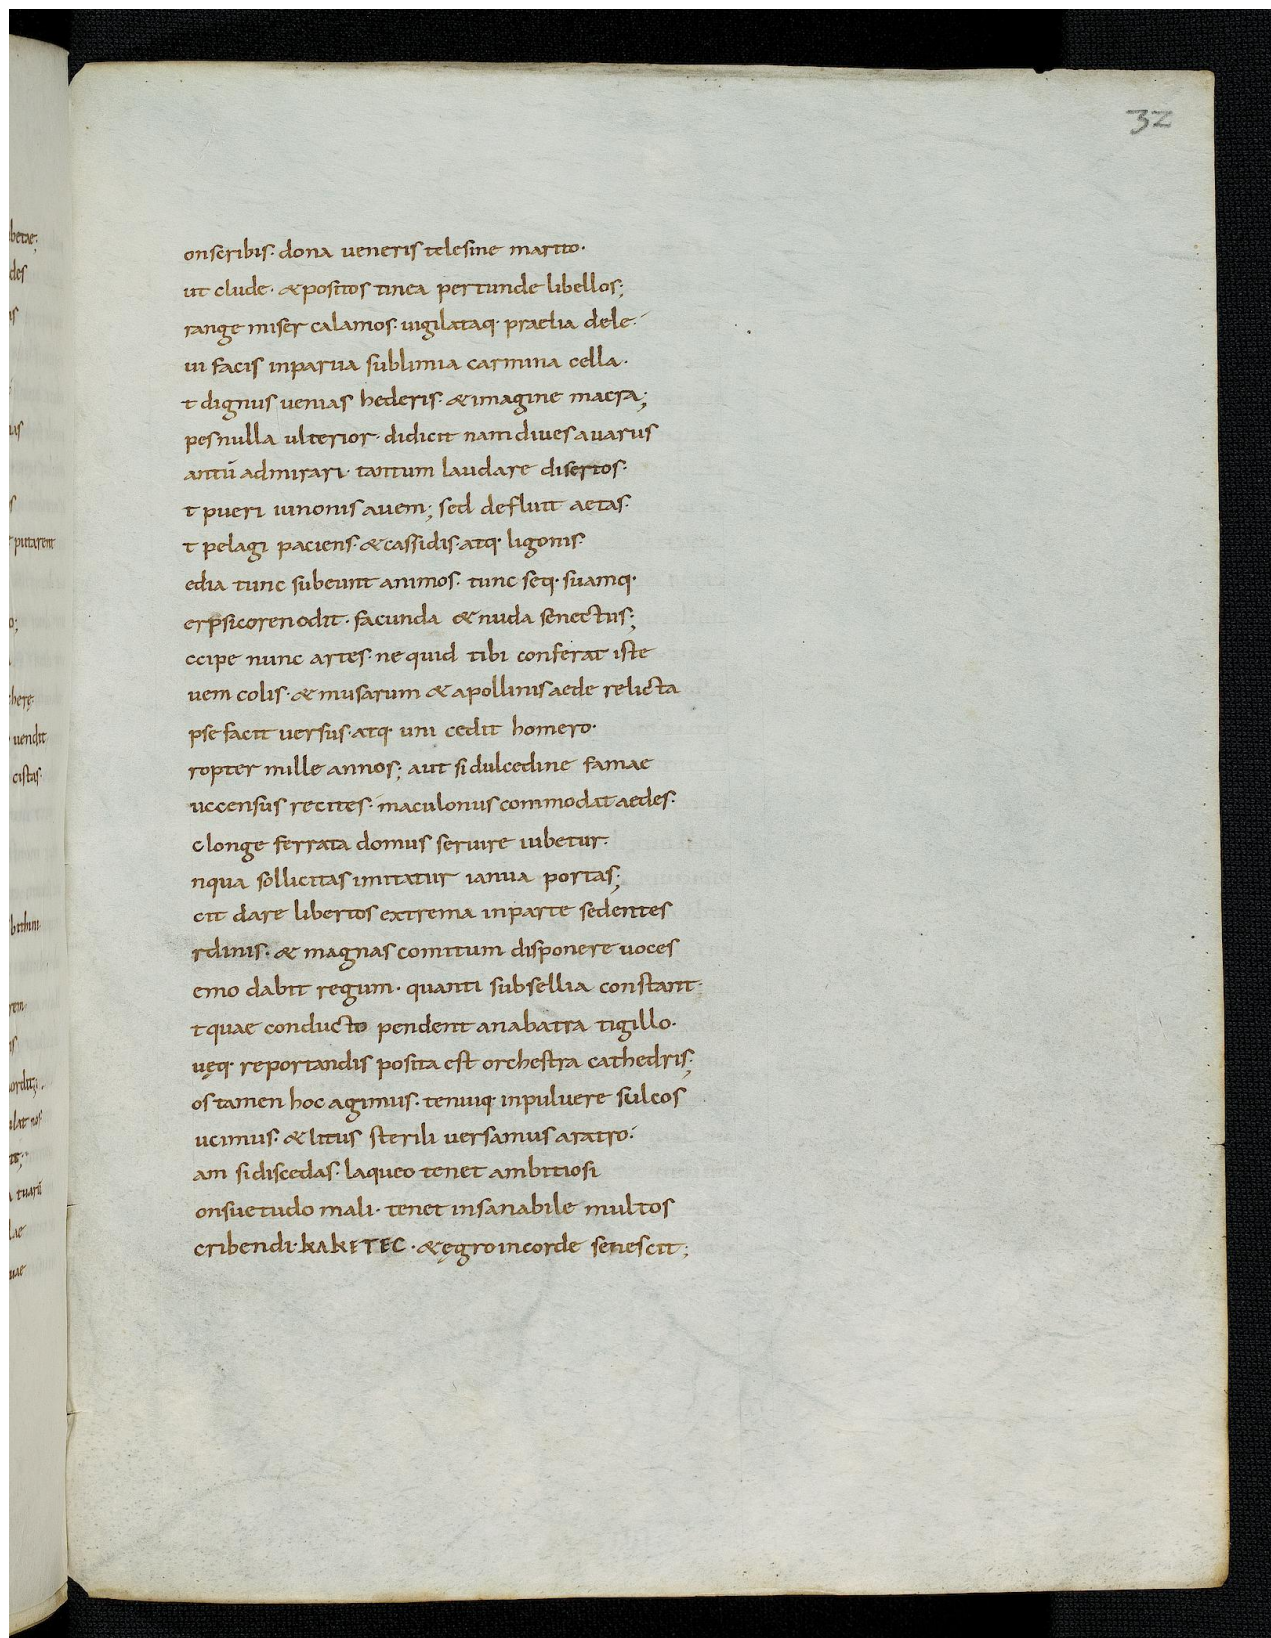 32
onscribis· dona ueneris telesine marito·
ut clude· & positos tinea pertunde libellos;
range miser calamos· uigilataq· praelia dele·
ui facis inparua sublimia carmina cella·
t dignus uenias hederis· & imagine macra;
pes nulla ulterior· didicit nam diues auarus
antū admirari· tantum laudare disertos·
t pueri iunonis auem; sed defluit aetas·
t pelagi paciens· & cassidis· atq· ligonis·
edia tunc subeunt animos· tunc seq· suamq·
erpsicoren odit· facunda & nuda senectus;
ccipe nunc artes· ne quid tibi conferat iste
uem colis· & musarum & apollinis aede relicta
pse facit uersus· atq· uni cedit homero·
ropter mille annos; aut si dulcedine famae
uccensus recites· maculonus commodat aedes·
c longe ferrata domus seruire iubetur·
nqua sollicitas imitatur ianua portas;
cit dare libertos extrema inparte sedentes
rdinis· & magnas comitum disponere uoces
emo dabit regum· quanti subsellia constant·
t quae conducto pendent anabatra tigillo·
uęq· reportandis posita est orchestra cathedris;
os tamen hoc agimus· tenuiq· inpuluere sulcos
ucimus· & litus sterili uersamus aratro·
am si discedas· laqueo tenet ambitiosi
onsuetudo mali· tenet insanabile multos
cribendi· KAKETEC· & ęgro incorde senescit;